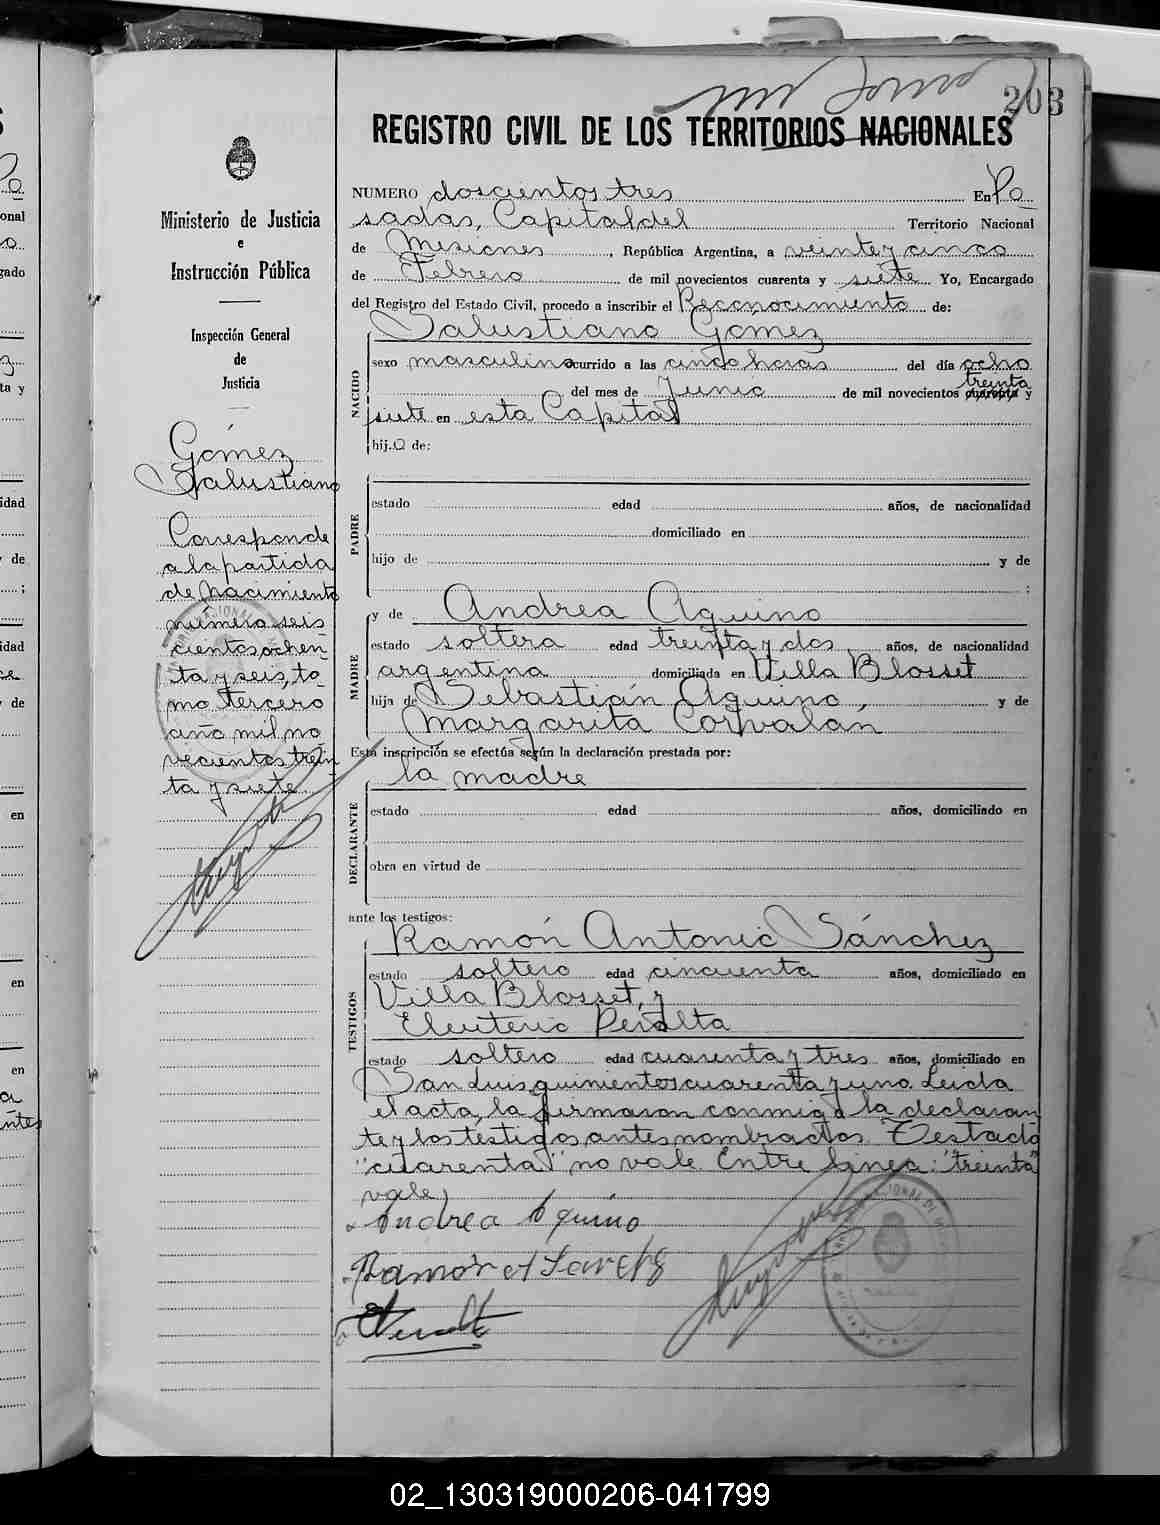 203
REGISTRO CIVIL DE LOS TERRITORIOS NACIONALES
Ministerio de Justicia
e
Instrucción Pública
Inspección General
de
Justicia
Gómez
Salustiano
Corresponde
a la partida
de Nacimiento
número seis
cientos ochen
ta y seis, to
mo tercero
año mil no
vecientos trein
ta y siete.
NUMERO doscientos tres En Po
sadas, Capital del Territorio Nacional
de Misiones, República Argentina, a veinte y cinco
de Febrero de mil novecientos cuarenta y siete Yo, Encargado
del Registro del Estado Civil, procedo a inscribir el Reconocimiento de:
NACIDO
Salustiano Gómez
sexo masculino ocurrido a las cinco horas del día ocho
treinta
del mes de Junio de mil novecientos cuarenta y
siete en esta Capital
hij.o de:
PADRE
estado edad años, de nacionalidad
domiciliado en
hijo de y de
;
MADRE
y de Andrea Aquino
estado soltera edad treinta y dos años, de nacionalidad
argentina domiciliada en Villa Blosset
hija de Sebastián Aquino, y de
Margarita Corvalán
Esta inscripción se efectúa según la declaración prestada por:
DECLARANTE
la madre
estado edad años, domiciliado en
obra en virtud de
ante los testigos:
TESTIGOS
Ramón Antonio Sánchez
estado soltero edad cincuenta años, domiciliado en
Villa Blosset, y
Eleuterio Peralta
estado soltero edad cuarenta y tres años, domiciliado en
San Luis quinientos cuarenta y uno. Leida
el acta, la firmaron conmigo la declaran
te y los testigos antes nombrados. Testado
"cuarenta" no vale. Entre linea: "treinta"
vale
Andrea Aquino
Ramón A
02_130319000206-041799